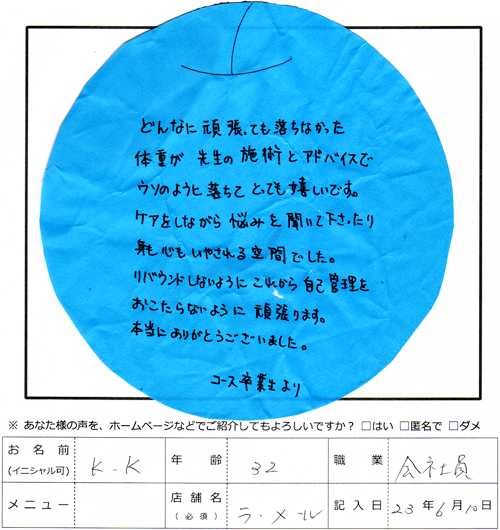 どんなに頑張っても落ちなかった
体重が先生の施術とアドバイスで
ウソのように落ちてとっても嬉しいです。
ケアをしながら悩みを聞いて下さったり
身も心もいやされる空間でした。
リバウンドしないようにこれから自己管理を
おこたらないように頑張ります。
本当にありがとうございました。
コース卒業生より
※ あなた様の声を、ホームページなどでご紹介してもよろしいですか？ □はい □匿名で □ダメ
お名前 (イニシャル可) K・K 年齢 32 職業 会社員
メニュー 店舗名 (必須) ラ・メール 記入日 23年6月10日